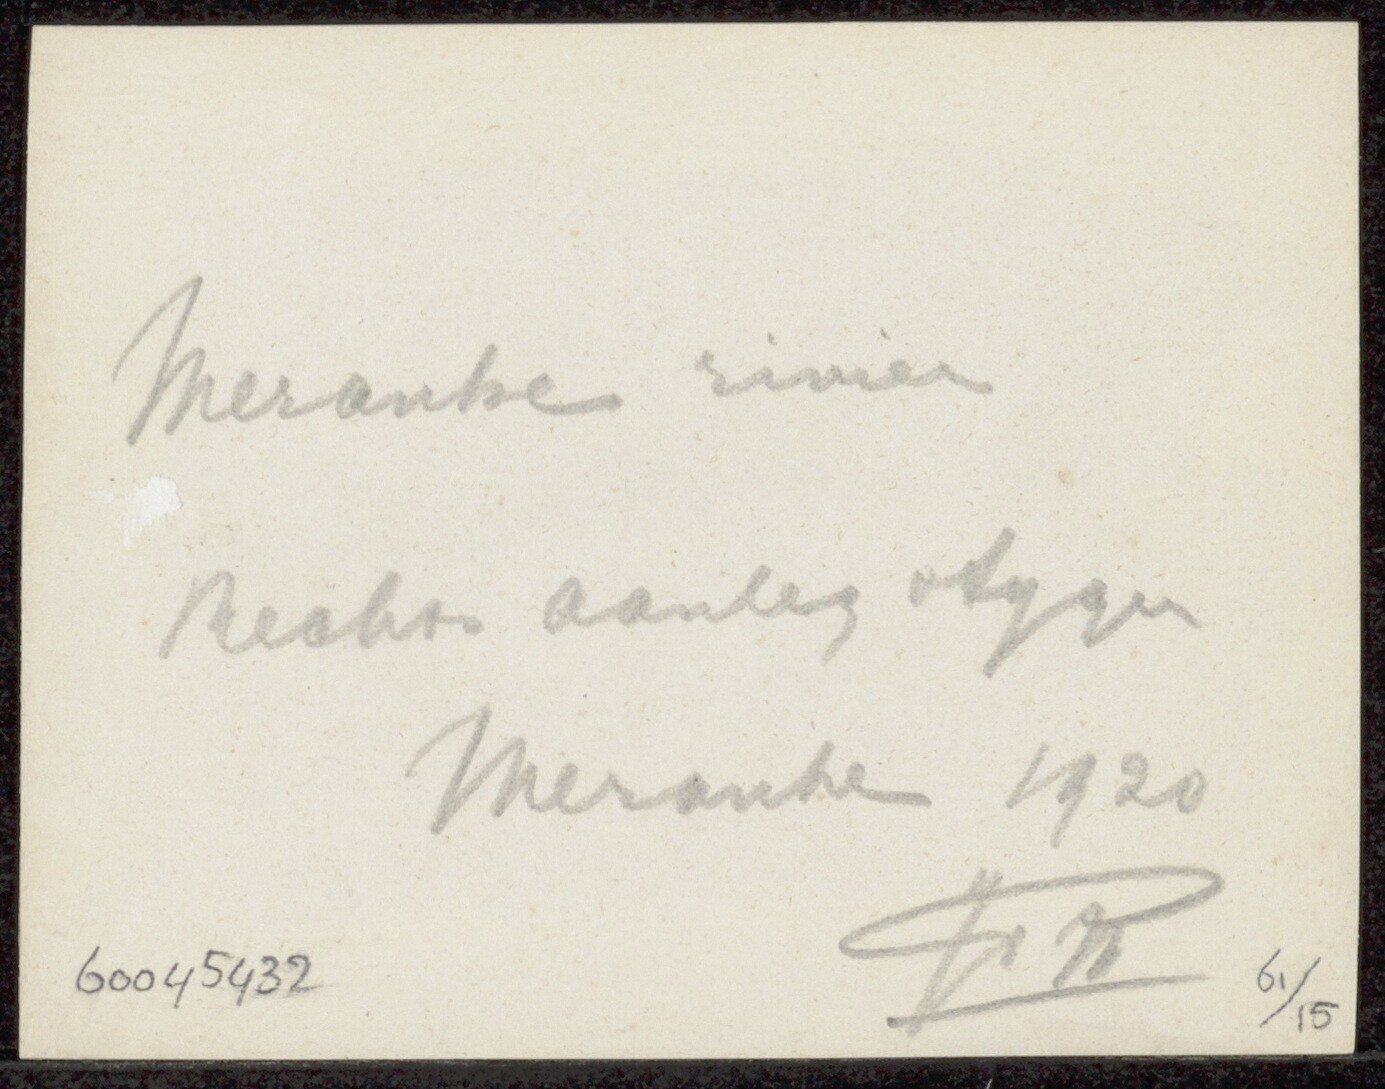 Merauke rivier
Rechts aanleg styger
Merauke 1920
60045432
61/15